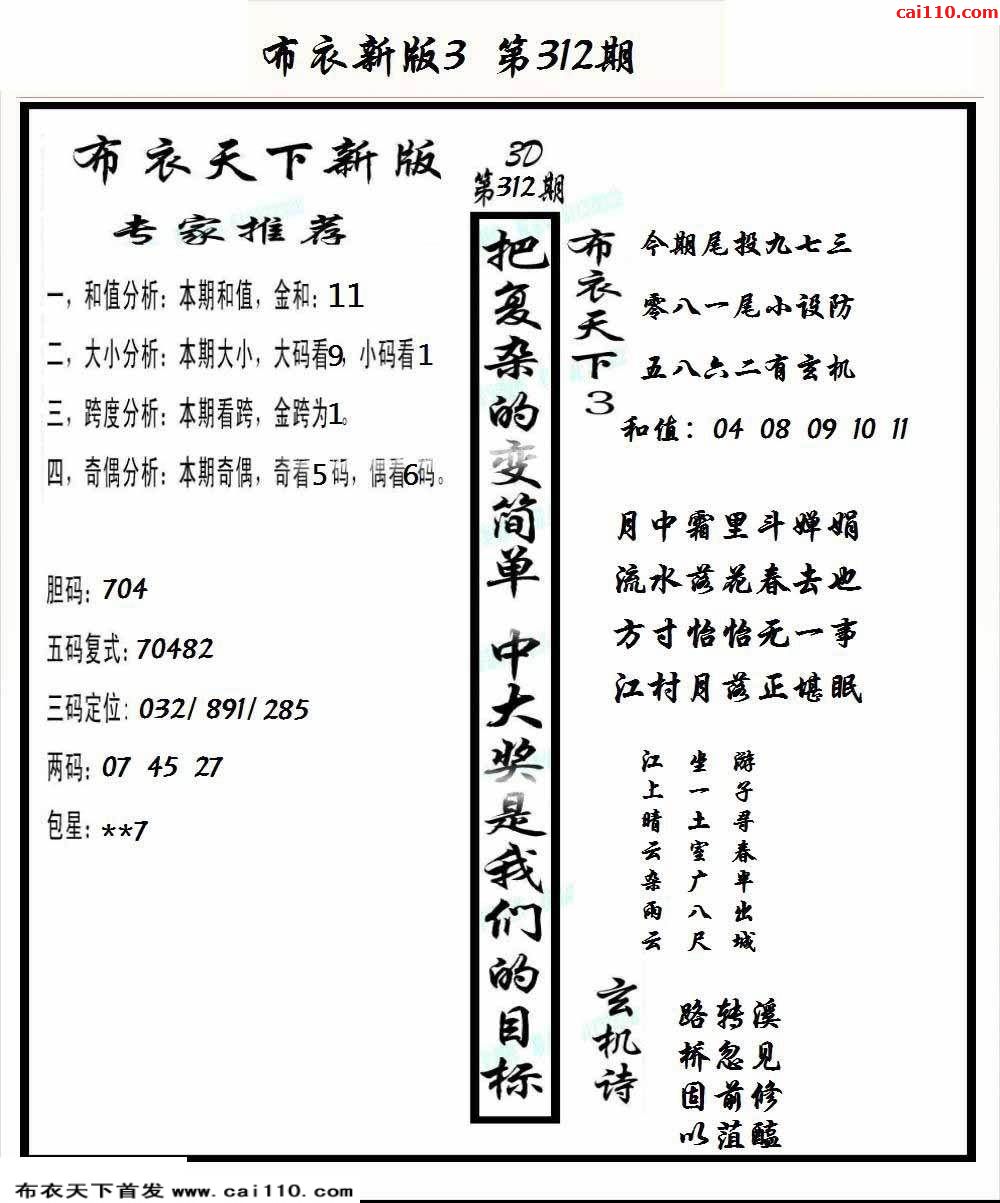 cai110.com
布衣新版3 第312期
布衣天下新版
专家推荐
一，和值分析：本期和值，金和：11
二，大小分析：本期大小，大码看9，小码看1
三，跨度分析：本期看跨，金跨为1。
四，奇偶分析：本期奇偶，奇看5码，偶看6码。
胆码：704
五码复式：70482
三码定位：032/ 891/ 285
两码：07 45 27
包星：**7
3D
第312期
把复杂的变简单 中大奖是我们的目标
布衣天下3
今期尾投九七三
零八一尾小设防
五八六二有玄机
和值： 04 08 09 10 11
月中霜里斗婵娟
流水落花春去也
方寸怡怡无一事
江村月落正堪眠
游子寻春半出城
坐一土室广八尺
江上晴云杂雨云
玄机诗
路转溪
桥忽见
固前修
以菹醢
布衣天下首发 www.cai110.com